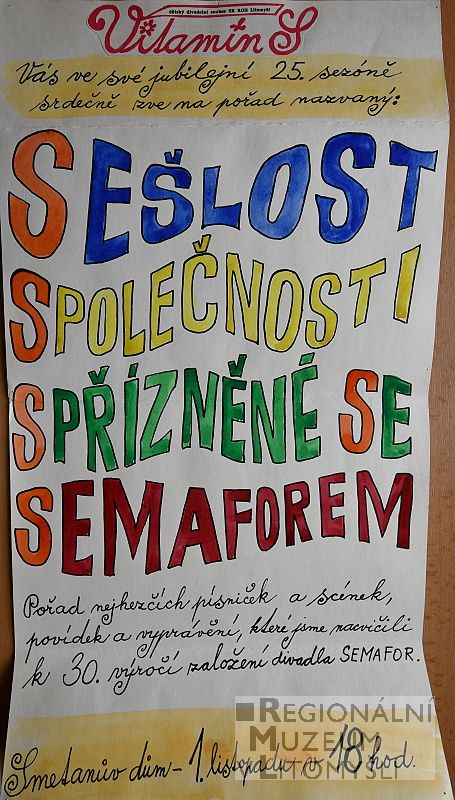 dětský divadelní soubor SK ROH Litomyšl
Vitamín S
Vás ve své jubilejní 25. sezóně
srdečně zve na pořad nazvaný:
SEŠLOST
SPOLEČNOSTI
SPŘÍZNĚNÉ SE
SEMAFOREM
Pořad nejhezčích písniček a scének,
povídek a vyprávění, které jsme nacvičili
k 30. výročí založení divadla SEMAFOR.
REGIONÁLNÍ
MUZEUM
LITOMYŠLI
Smetanův dům - 1. listopadu v 18 hod.